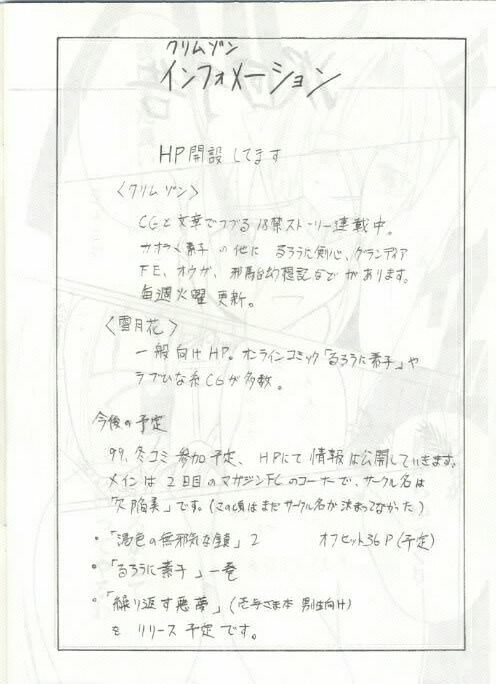 クリムゾン
インフォメーション
HP開設してます
〈クリムゾン〉
CGと文章でつづる18禁ストーリー連載中。
カオラ・素子の他にるろうに剣心、グランディア
FE、オウガ、邪馬台幻想記などがあります。
毎週火曜更新。
〈雪月花〉
一般向けHP。オンラインコミック「るろうに素子」や
ラブひな系CGが多数。
今後の予定
99,冬コミ参加予定、HPにて情報は公開していきます。
メインは2日目のマガジンFCのコーナーで、サークル名は
「欠陥美」です。(この頃はまだサークル名が決まってなかった)
・「褐色の無邪気な鎖」2 オフセット36P(予定)
・「るろうに素子」一巻
・「繰り返す悪夢」(壱与さま本 男性向け)
をリリース予定です。